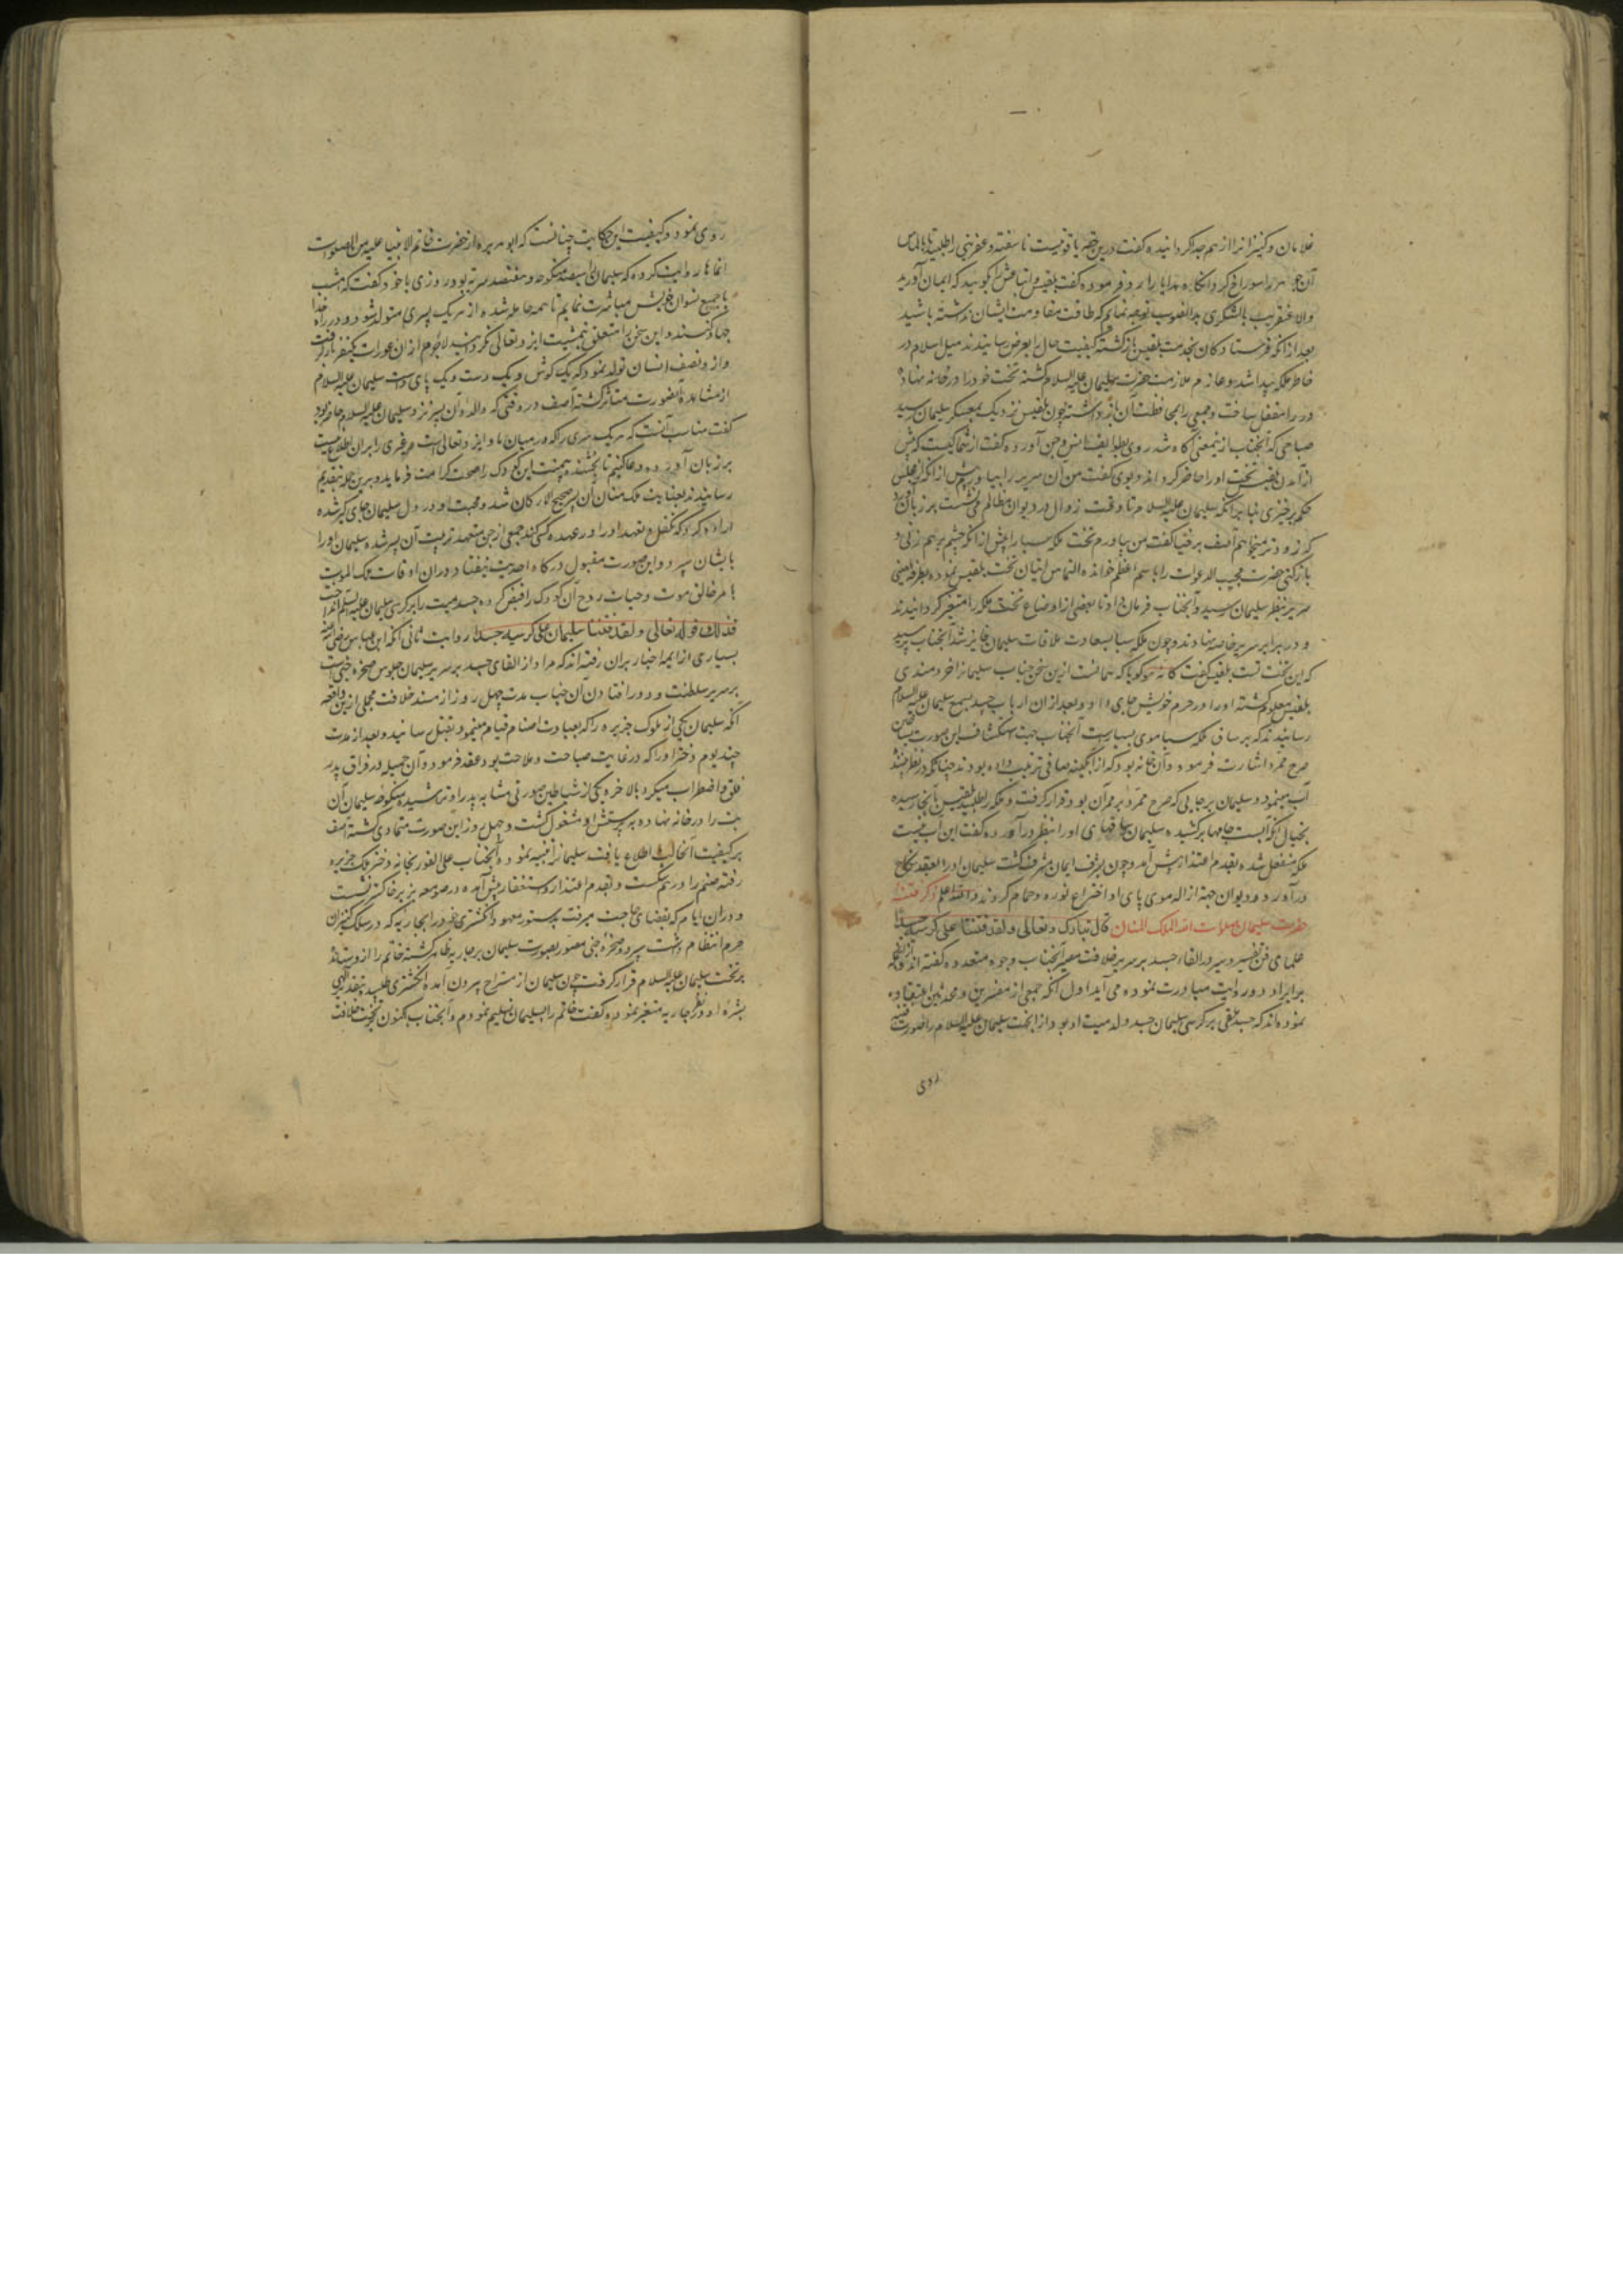 غلامان و کنیزانرا از هم جدا کردانیده کفت درین حقه یاقوتیست ناسفته و عفریتی را طلبید تا بالماس
آن جوهر را سوراخ کرد وانکاه هدایا را رد فرموده کفت بلقیس و اتباعش را بکویید که ایمان آورید
والا عنقریب با لشکری بدانصوب توجه نمایم که طاقت مقاومت ایشان نداشته باشید
بعد از انکه فرستادکان بخدمت بلقیس بازکشته کیفیت حال را بعرض رسانیدند میل اسلام در
خاطر ملکه پیدا شد و عازم ملازمت حضرت سلیمان علیه السلام کشته تخت خود را در خانه نهاده
در را مقفل ساخت و جمعی را بمحافظت آن بازداشته چون بلقیس نزدیک بمعسکر سلیمان رسید
صباحی که آنجناب ازینمعنی آکاه شد روی بطوایف انس و جن آورده کفت از شما کیست که پیش
از آمدن بلقیس تخت او را حاضر کرداند دیوی کفت من آن سریر را بیاورم پیش از انکه از مجلس
حکم برخیزی بنابر آنکه سلیمان علیه السلام تا وقت زوال در دیوان مظالم می نشست بر زبان آورد
که زودتر میخواهم آصف برخیا کفت من بیاورم تخت ملکه سبا را پیش از انکه چشم برهم زنی و
باز کنی حضرت مجیب الدعوات را باسم اعظم خوانده التماس اتیان تخت بلقیس نموده بطرفة العینی
سریر بنظر سلیمان رسید و آنجناب فرمان داد تا بعضی از اوضاع تخت ملکه را متغیر کردانیدند
و در برابر سریر خاصه نهادند و چون ملکه سبا بسعادت ملاقات سلیمان فایز شد آنجناب پرسید
که این تخت تست بلقیس کفت کانه هو کویا که همانست ازین سخن جناب سلیمانرا خردمندی
بلقیس معلوم کشته او را در حرم خویش جای داد و بعد ازان ارباب حسد بسمع سلیمان علیه السلام
رسانیدند که بر ساق ملکه سبا موی بسیارست آنجناب جهت استکشاف این صورت بساختن
صرح ممرد اشارت فرمود و آن خانه بود که از آبکینه صافی ترتیب داده بودند چنانکه در نظر بیننده
آب مینمود و سلیمان بر جایی که صرح ممرد بر ممر آن بود قرار کرفت و ملکه را طلبید بلقیس بانجا رسیده
بخیال انکه آبست جامها برکشیده سلیمان ساقهای او را بنظر درآورده کفت این آب نیست
ملکه منفعل شده بقدم اعتذار پیش آمد و چون بشرف ایمان مشرف کشت سلیمان او را بعقد نکاح
درآورد و دیوان جهة ازاله موی پای او اختراع نوره و حمام کردند والله اعلم ذکر فتنه
حضرت سلیمان صلوات الله الملک المنان قال تبارک و تعالی و لقد فتنا سلیمان علی کرسیه جسدا
علمای فن تفسیر و سیر در القاء جسد بر سریر خلافت مصیر آنجناب وجوه متعدده کفته اند
برایراد دو روایت مبادرت نموده می آید اول آنکه جمعی از مفسرین و محدثین اعتقاد
نموده اند که جسد ملقی بر کرسی سلیمان جسد ولد میت او بود ازانجهت سلیمان علیه السلام را صورت فتنه
روی
روی نمود و کیفیت این حکایت چنانست که ابو هریره از حضرت خاتم الانبیا علیه من الصلوات
انماها روایت کرده که سلیمان را سیصد منکوحه و هفتصد سریه بود روزی با خود کفت که امشب
با جمیع نسوان خویش مباشرت نمایم تا همه حامله شده از هر یک پسری متولد شود و در راه خدا
جهاد کنند و این سخن را متعلق بمشیت ایزد تعالی نکردانید لاجرم ازان عورات یکنفر بار کرفت
و ازو نصف انسان تولد نمود که یک کوش و یک دست و یک پای داشت سلیمان علیه السلام
از مشاهده آنصورت متاثر کشته آصف در وقتی که والده آن پسر نزد سلیمان علیه السلام حاضر بود
کفت مناسب آنست که هر یک سری را که در میان ما و ایزد تعالی است و غیری را بران اطلاع نیست
بر زبان آورده دعا کنیم تا بخشنده بیمنت این کودک را صحت کرامت فرماید و برین جمله بتقدیم
رسانیدند بعنایت ملک منان آن پسر صحیح الارکان شد و محبت او در دل سلیمان جای کیر شده
اراده کرد که تکفل و تعهد او را در عهده کسی کند جمعی از جن متعهد تربیت آن پسر شده سلیمان او را
بایشان سپرد و این صورت مقبول درکاه احدیت نیفتاد دران اوقات ملک الموت
بامر خالق موت و حیات روح آن کودک را قبض کرده جسد میت را بر کرسی سلیمان علیه السلم انداخت
فذلک قوله تعالی و لقد فتنا سلیمان علی کرسیه جسدا روایت ثانی آنکه ابن عباس رضی الله عنه
بسیاری از ایمه اخبار بران رفته اند که مراد از القای جسد بر سریر سلیمان جلوس صخره جنی است
بر سریر سلطنت و دور افتادن آن جناب مدت چهل روز از مسند خلافت مجملی ازین واقعه
آنکه سلیمان یکی از ملوک جزیره را که بعبادت اصنام قیام مینمود بقتل رسانید و بعد از مدت
چند یوم دختر او را که در غایت صباحت و ملاحت بود عقد فرمود و آن جمیله در فراق پدر
قلق و اضطراب میکرد بالاخره یکی از شیاطین صورتی مشابه پدر او تراشیده منکوحه سلیمان آن
بت را در خانه نهاده به پرستش او مشغول کشت و چهل روز این صورت متمادی کشته آصف
بر کیفیت آنحالت اطلاع یافت سلیمانرا تنبیه نموده آنجناب علی الفور بخانه دختر ملک جزیره
رفته صنم را در هم شکست و بقدم اعتذار و استغفار پیش آمده در صومعه بر خاکستر نشست
و دران ایام که بقضای حاجت میرفت بدستور معهود انکشتری خود را بجاریه که در سلک کنیزان
حرم انتظام داشت سپرد و صخره جنی مصور بصورت سلیمان بر جاریه ظاهر کشته خاتم را ازو بستاند
بر تخت سلیمان علیه السلام قرار کرفت چون سلیمان از مستراح بیرون آمده انکشتری طلبید بتقدیر الهی
بشره او در نظر جاریه متغیر نموده کفت خاتم را بسلیمان تسلیم نمودم و آنجناب اکنون بر تخت خلافت